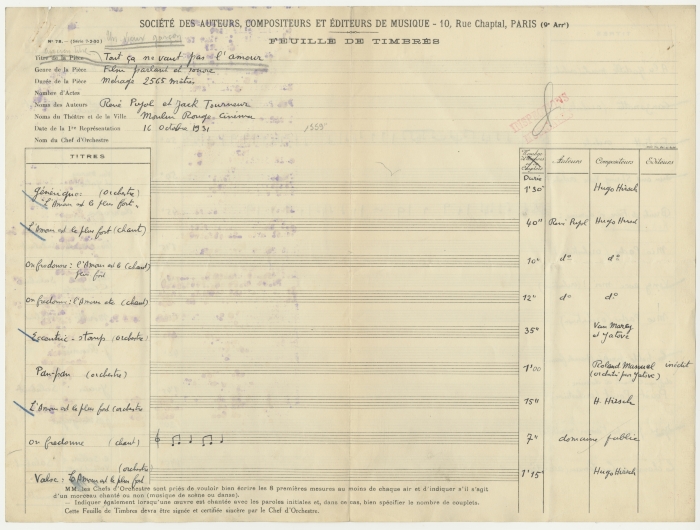 SOCIÉTÉ DES AUTEURS, COMPOSITEURS ET ÉDITEURS DE MUSIQUE - 10, Rue Chaptal, PARIS (9e Arrt)
FEUILLE DE TIMBRES
Titre de la Pièce Tout ça ne vaut pas l'amour
Genre de la Pièce Film parlant et sonore
Durée de la Pièce Métrage 2565 mètres
Nombre d'Actes
Noms des Auteurs René Pujol et Jack Tourneur
Noms du Théâtre et de la Ville Moulin Rouge Cinéma
Date de la 1re Représentation 16 Octobre 1931
Nom du Chef d'Orchestre
TITRES Durée Auteurs Compositeurs Editeurs
Générique: (orchestre) 1'30" Hugo Hirsch
"L'Amour est le plus fort"
L'Amour est le plus fort (chant) 40" René Pujol Hugo Hirsch
on fredonne: l'Amour est le (chant) 10" do do
plus fort
on fredonne: l'Amour etc (chant) 12" do do
Excentric-stomp (orchestre) 35" Van Marcy
et Yatove
Pan-pan (orchestre) 1'00 Roland Manuel inédit
(orchestré par Yatove)
L'Amour est le plus fort (orchestre 15" H. Hirsch
on fredonne (chant) 7" domaine public
(orchestre)
Valse: L'Amour est le plus fort 1'15" Hugo Hirsch
MM. les Chefs d'Orchestre sont priés de vouloir bien écrire les 8 premières mesures au moins de chaque air et d'indiquer s'il s'agit
d'un morceau chanté ou non (musique de scène ou danse).
— Indiquer également lorsqu'une œuvre est chantée avec les paroles initiales et, dans ce cas, bien spécifier le nombre de couplets.
Cette Feuille de Timbres devra être signée et certifiée sincère par le Chef d'Orchestre.